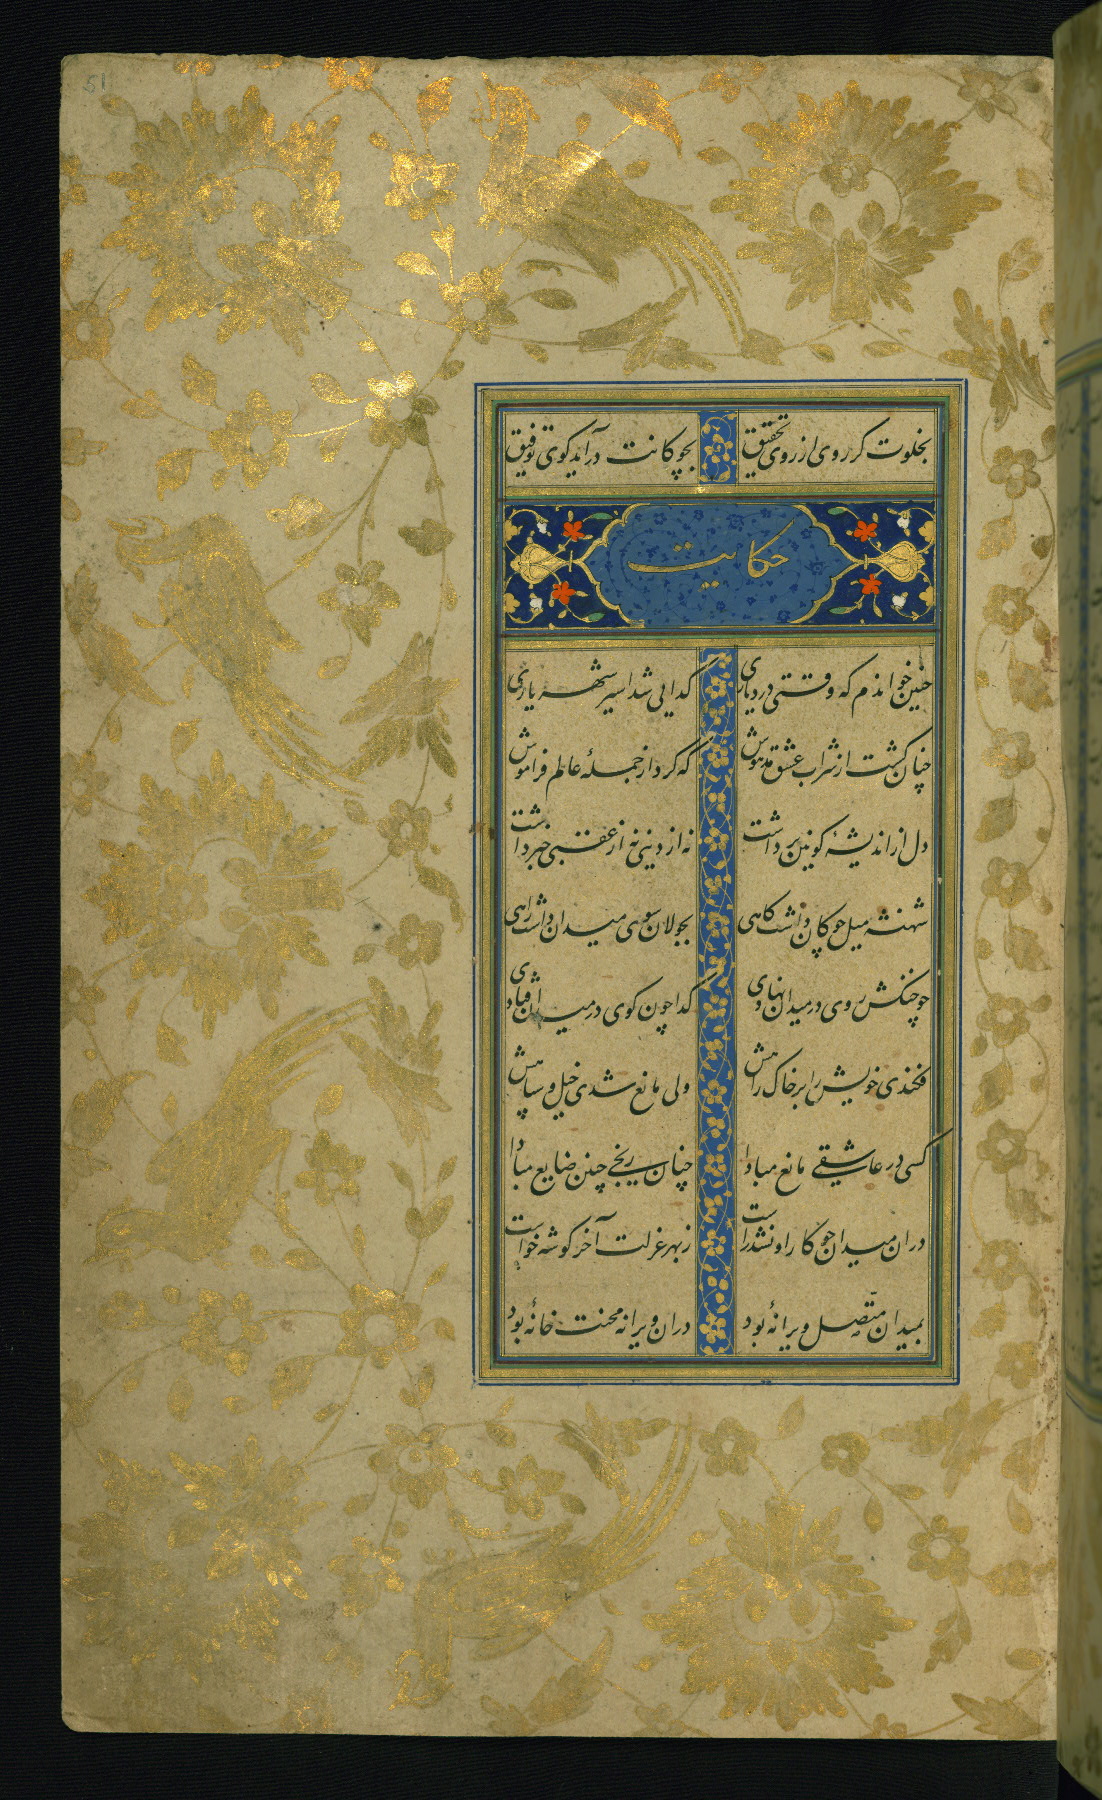 51
بخلوت کر روی از روی تحقیق بچوکانت در آید کوی توفیق
حکایت
چنین خواندم که وقتی در دیاری کدایی شد اسیر شهریاری
چنان کشت از شراب عشق مدهوش که کرد از جملهٔ عالم فراموش
دل از اندیشهٔ کونین برداشت نه از دنیی نه از عقبی خبر داشت
شهنشه میل چوکان داشت کاهی بجولان سوی میدان داشت راهی
چو خنکش روی در میدان نهادی کدا چون کوی در میدان فتادی
فکندی خویش را بر خاک راهش ولی مانع شدی خیل و سپاهش
کسی در عاشقی مانع مبادا چنان رنجی چنین ضایع مبادا
دران میدان چو کار او نشد راست ز بهر عزلت آخر کوشه خواست
بمیدان متصل ویرانهٔ بود دران ویرانه محنت خانهٔ بود